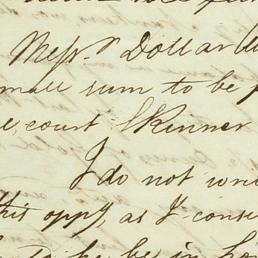 Messrs Dollar
small sum to be
court Skinner
I do not wri
this oppy, as I conse
to be be in